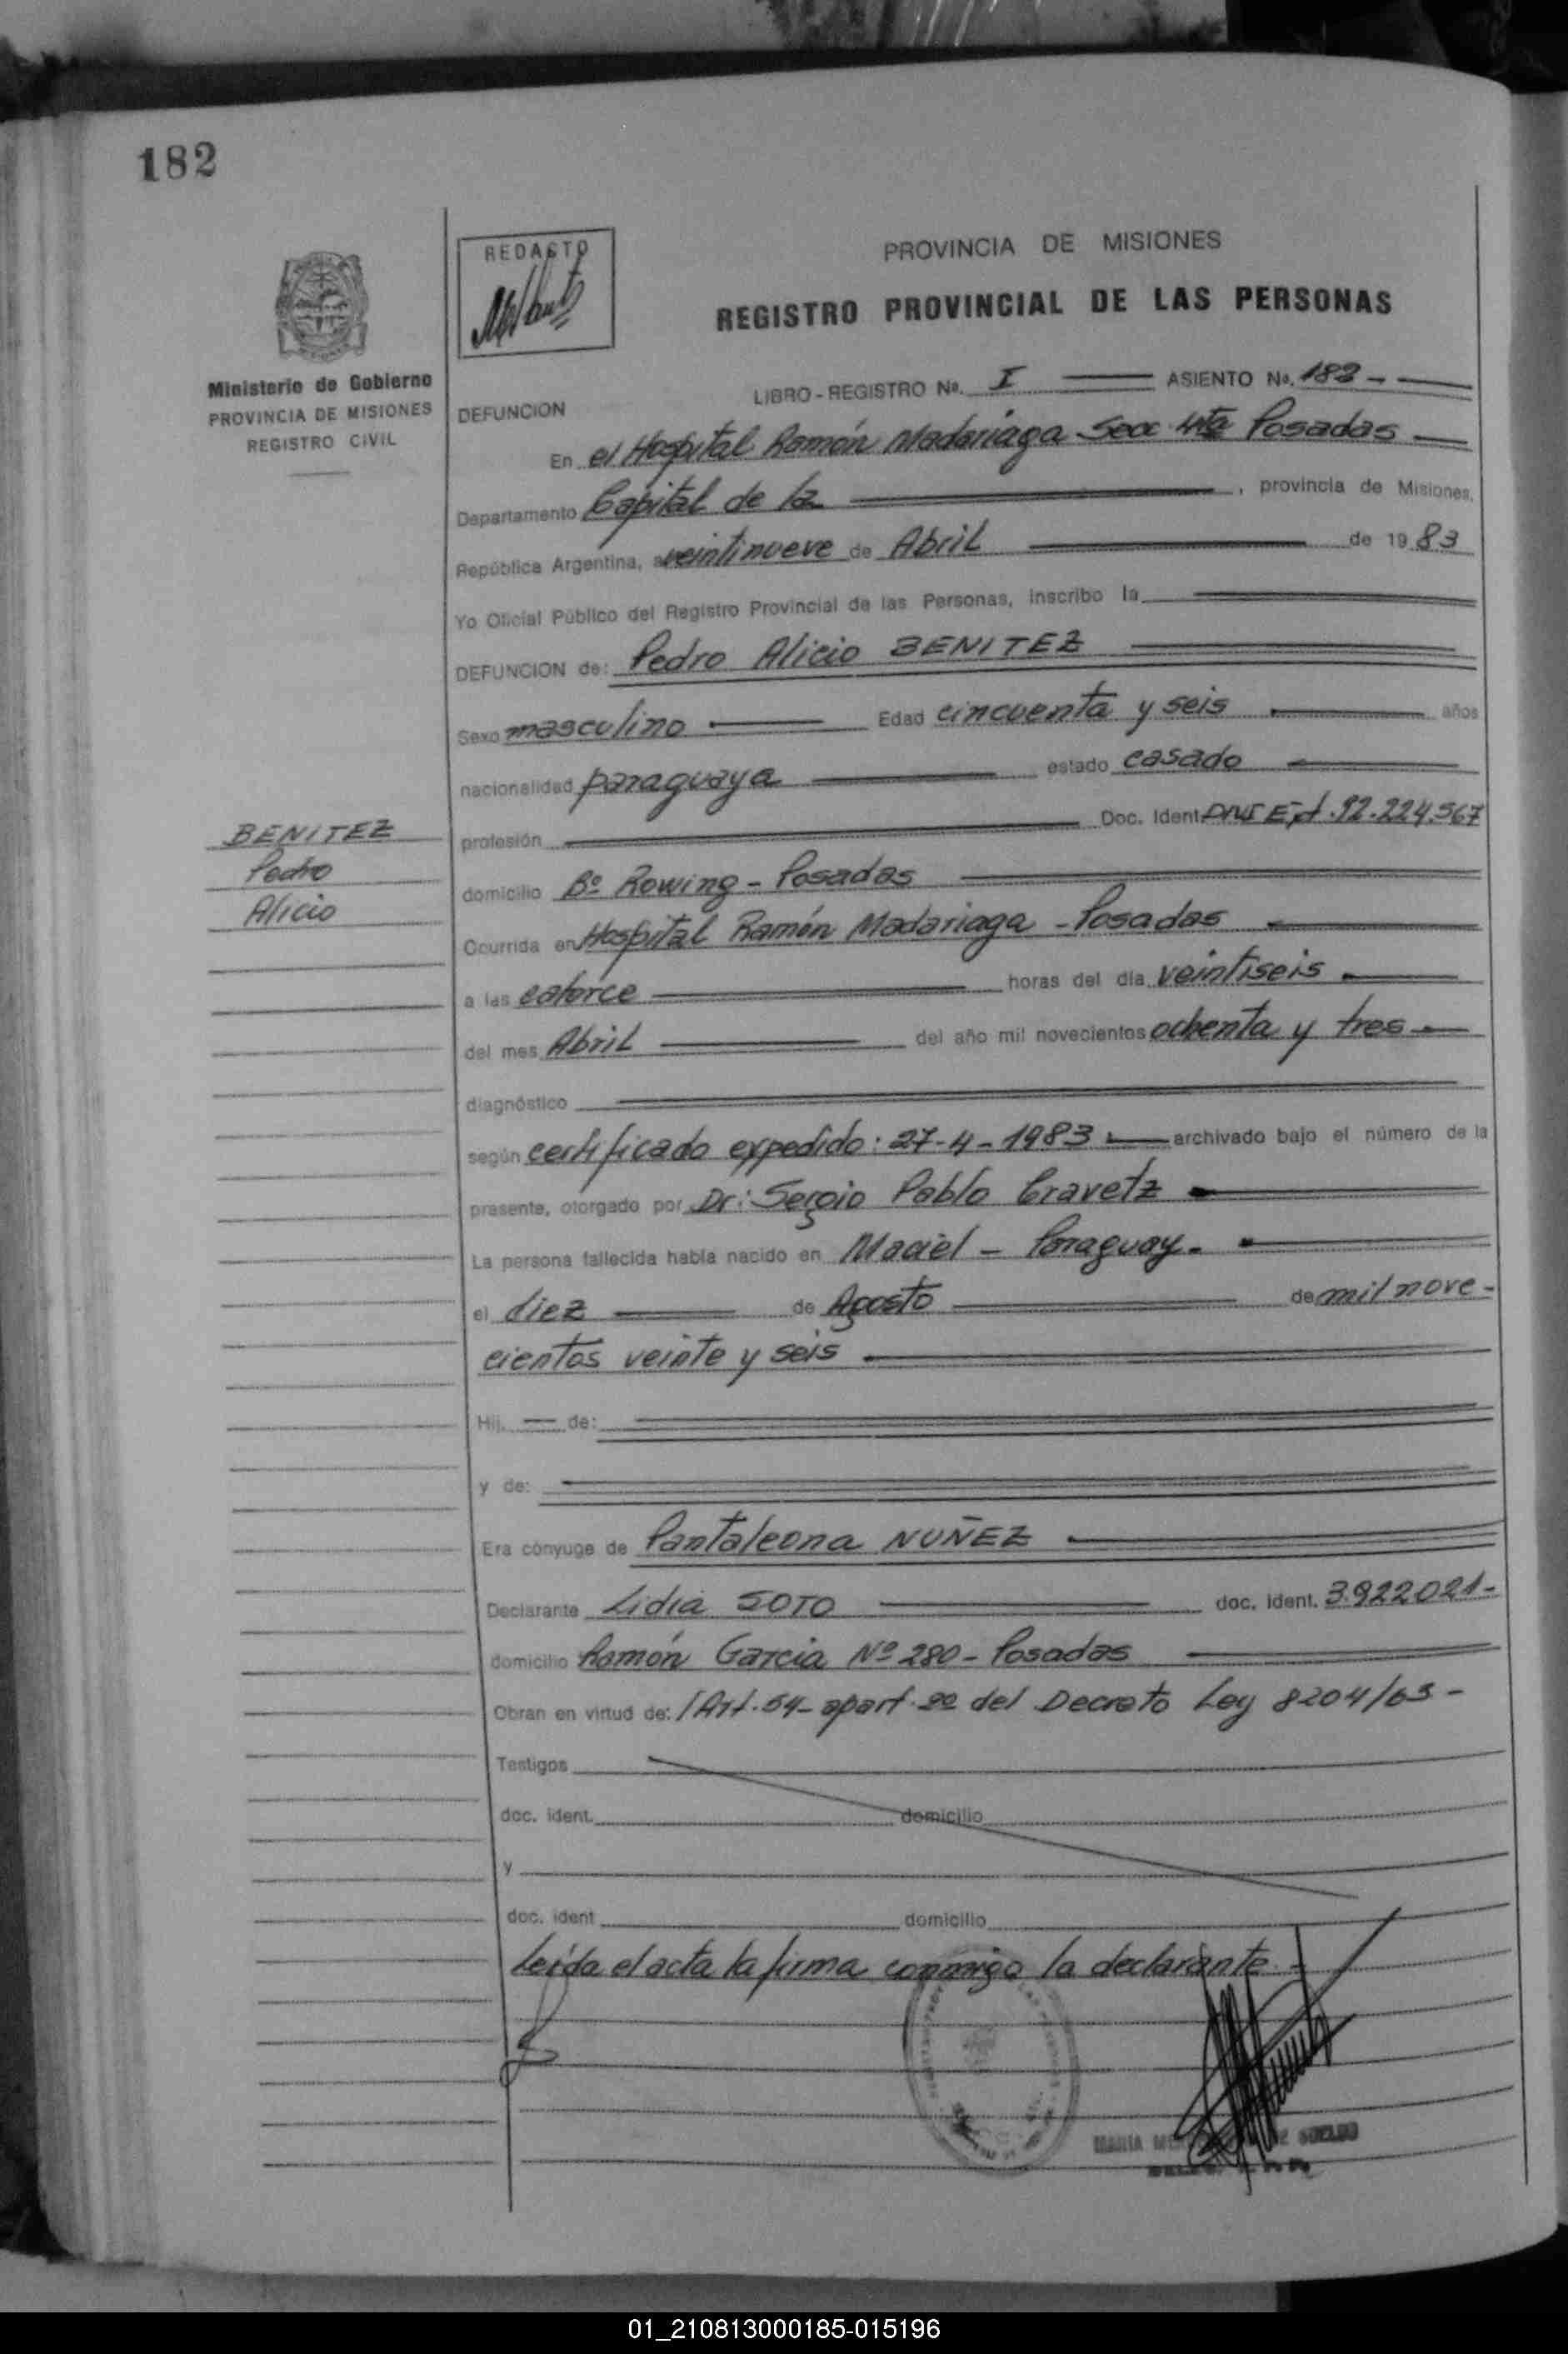 182
REDACTO
PROVINCIA DE MISIONES
REGISTRO PROVINCIAL DE LAS PERSONAS
Ministerio de Gobierno
PROVINCIA DE MISIONES
REGISTRO CIVIL
LIBRO - REGISTRO No. I ASIENTO No. 182 -
DEFUNCION
En el Hospital Ramón Madariaga Secc 4ta Posadas
Departamento Capital de la , provincia de Misiones,
República Argentina, a veintinueve de Abril de 19 83
Yo Oficial Público del Registro Provincial de las Personas, inscribo la
DEFUNCION de: Pedro Alicio BENITEZ
Sexo masculino Edad cincuenta y seis años
nacionalidad paraguaya estado casado
profesión Doc. Ident. DNI Ext. 92.224.567
BENITEZ
Pedro
Alicio
domicilio Bº Rowing - Posadas
Ocurrida en Hospital Ramón Madariaga - Posadas
a las catorce horas del día veintiseis
del mes Abril del año mil novecientos ochenta y tres
diagnóstico
según certificado expedido: 27-4-1983 archivado bajo el número de la
presente, otorgado por Dr: Sergio Pablo Cravetz
La persona fallecida había nacido en Maciel - Paraguay.
el diez de Agosto de mil nove-
cientos veinte y seis
Hij. de:
y de:
Era cónyuge de Pantaleona NUÑEZ
Declarante Lidia SOTO doc. ident. 3.922021-
domicilio Ramón Garcia Nº 280 - Posadas
Obran en virtud de: /Art. 54- apart. 2º del Decreto Ley 8204/63 -
Testigos
doc. ident. domicilio
y
doc. ident domicilio
Leída el acta la firma conmigo la declarante. -
MARIA
01_210813000185-015196